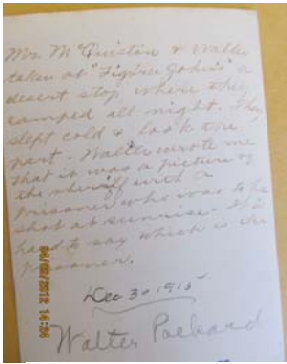 Mr. McQuistan & Walter
taken at "Figtree John's" a
desert stop where they
camped all night. They
slept cold & look the
part. Walter wrote me
that it was a picture of
the sheriff with a
prisoner who was to be
shot at sunrise. It is
hard to say which is the
prisoner.
Dec 30 1915
Walter Packard
06/02/2012 14:36